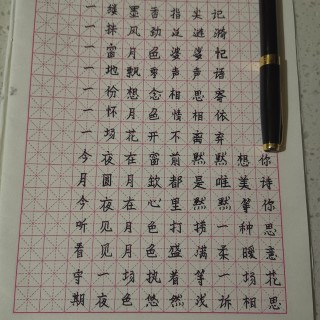 一缕墨香指尖记
一抹风劲逗涟漪
一窗月色婆娑忆
一地飘零声声语
一份想念相思寄
一怀月色惜相依
一场花开不离弃
今夜在窗前默默想你
月圆月欽都是唯美诗
今夜在心里默默等你
听见月色打捞一种思
看见月色盛满柔暖意
守一场执着等一场花
期夜色悠然浅诉相思